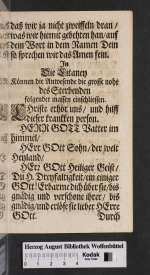 daß wir ja nicht zweiffeln dran/
was wir hiemit gebehten han/ auf
dein Wort in dem Namen Dein
so sprechen wir das Amen fein.
In
Die Litaney
Können die Anwesende die grosse noht
des Sterbenden
folgender massen einschliessen.
Christe erhör uns/ und hilff
dieser krancken person.
HERR GOTT Vatter im
himmel/
HErr GOtt Sohn/ der welt
Heyland/
HErr GOtt Heiliger Geist/
Du H. Dreyfaltigkeit/ ein einiger
GOtt/ Erbarme dich über sie/ bis
gnädig und verschone ihrer/ bis
gnädig und erlöse sie lieber HErre
GOtt. Durch
Herzog August Bibliothek Wolfenbüttel
Kodak